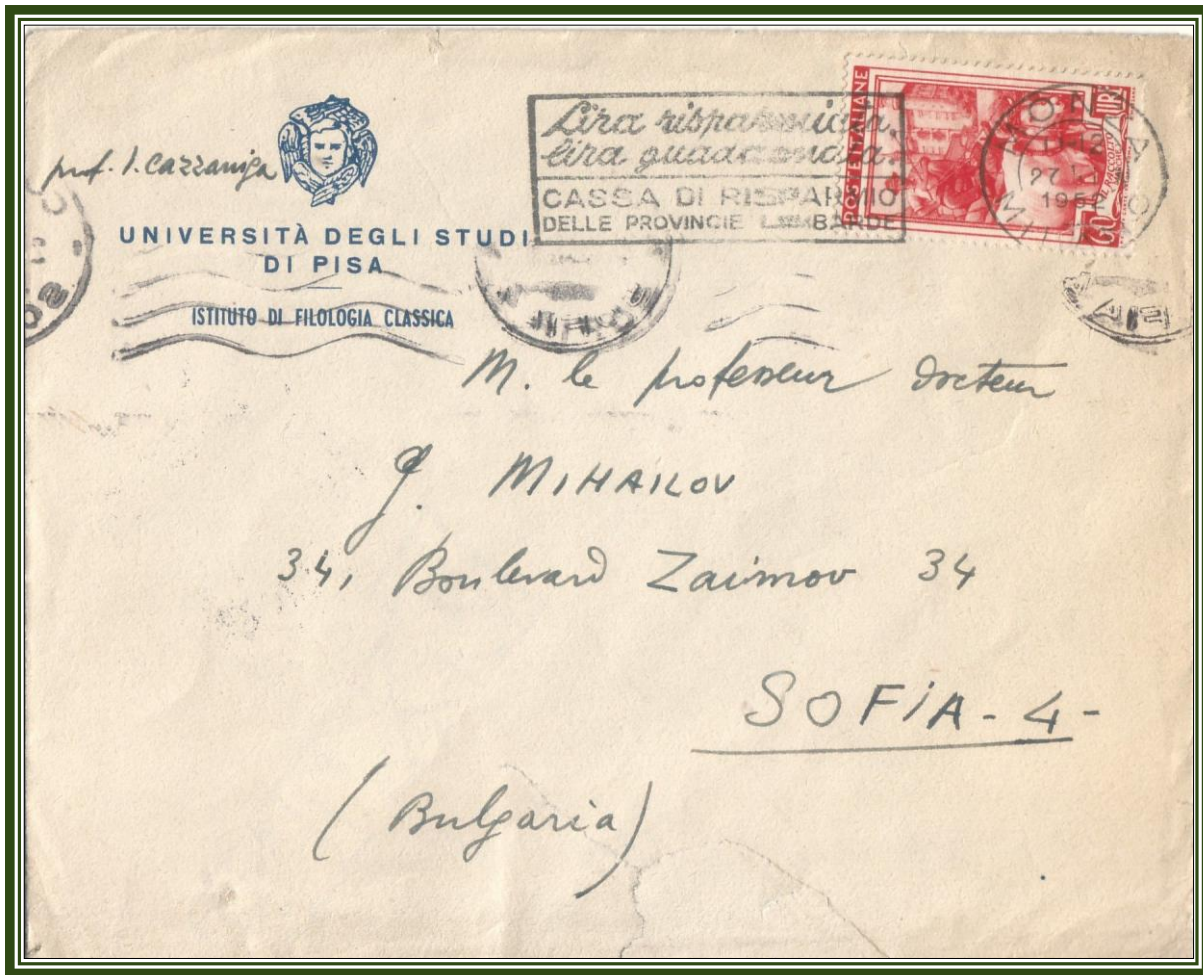 prof. I. Cazzaniga
UNIVERSITÀ DEGLI STUDI
DI PISA
ISTITUTO DI FILOLOGIA CLASSICA
Lira risparmiata
lira guadagnata
CASSA DI RISPARMIO
DELLE PROVINCIE LOMBARDE
POSTE ITALIANE
60
LIRE
11-12
27
M. le professeur docteur
G. MIHAILOV
34, Boulevard Zaimov 34
SOFIA - 4 -
(Bulgaria)